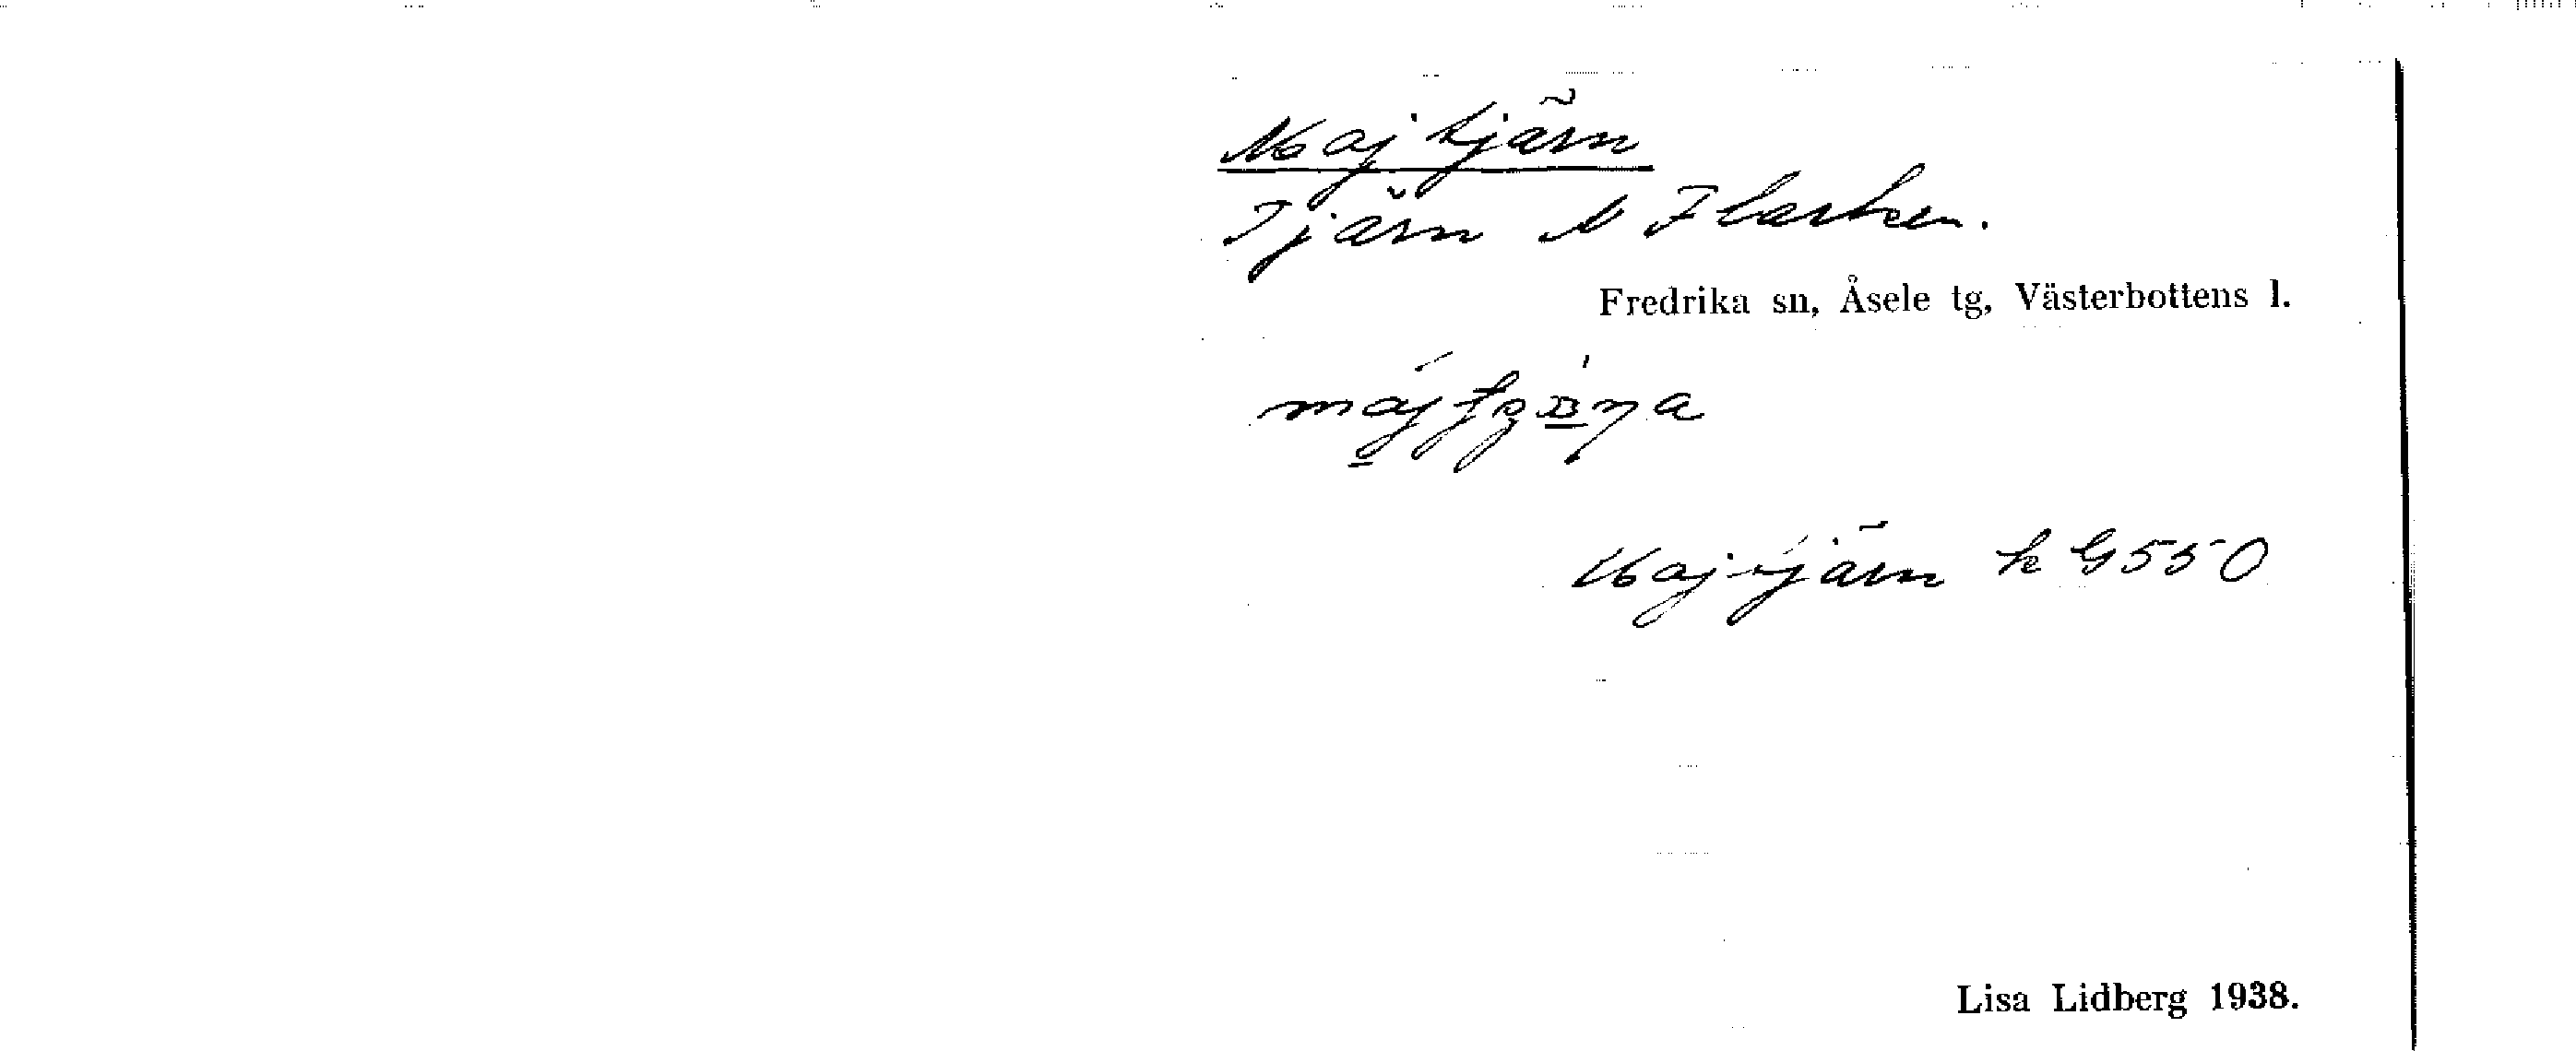 Majtjärn
Tjärn N Flarken.
Fredrika sn, Åsele tg, Västerbottens l.
Majtjärn k G550
Lisa Lidberg 1938.